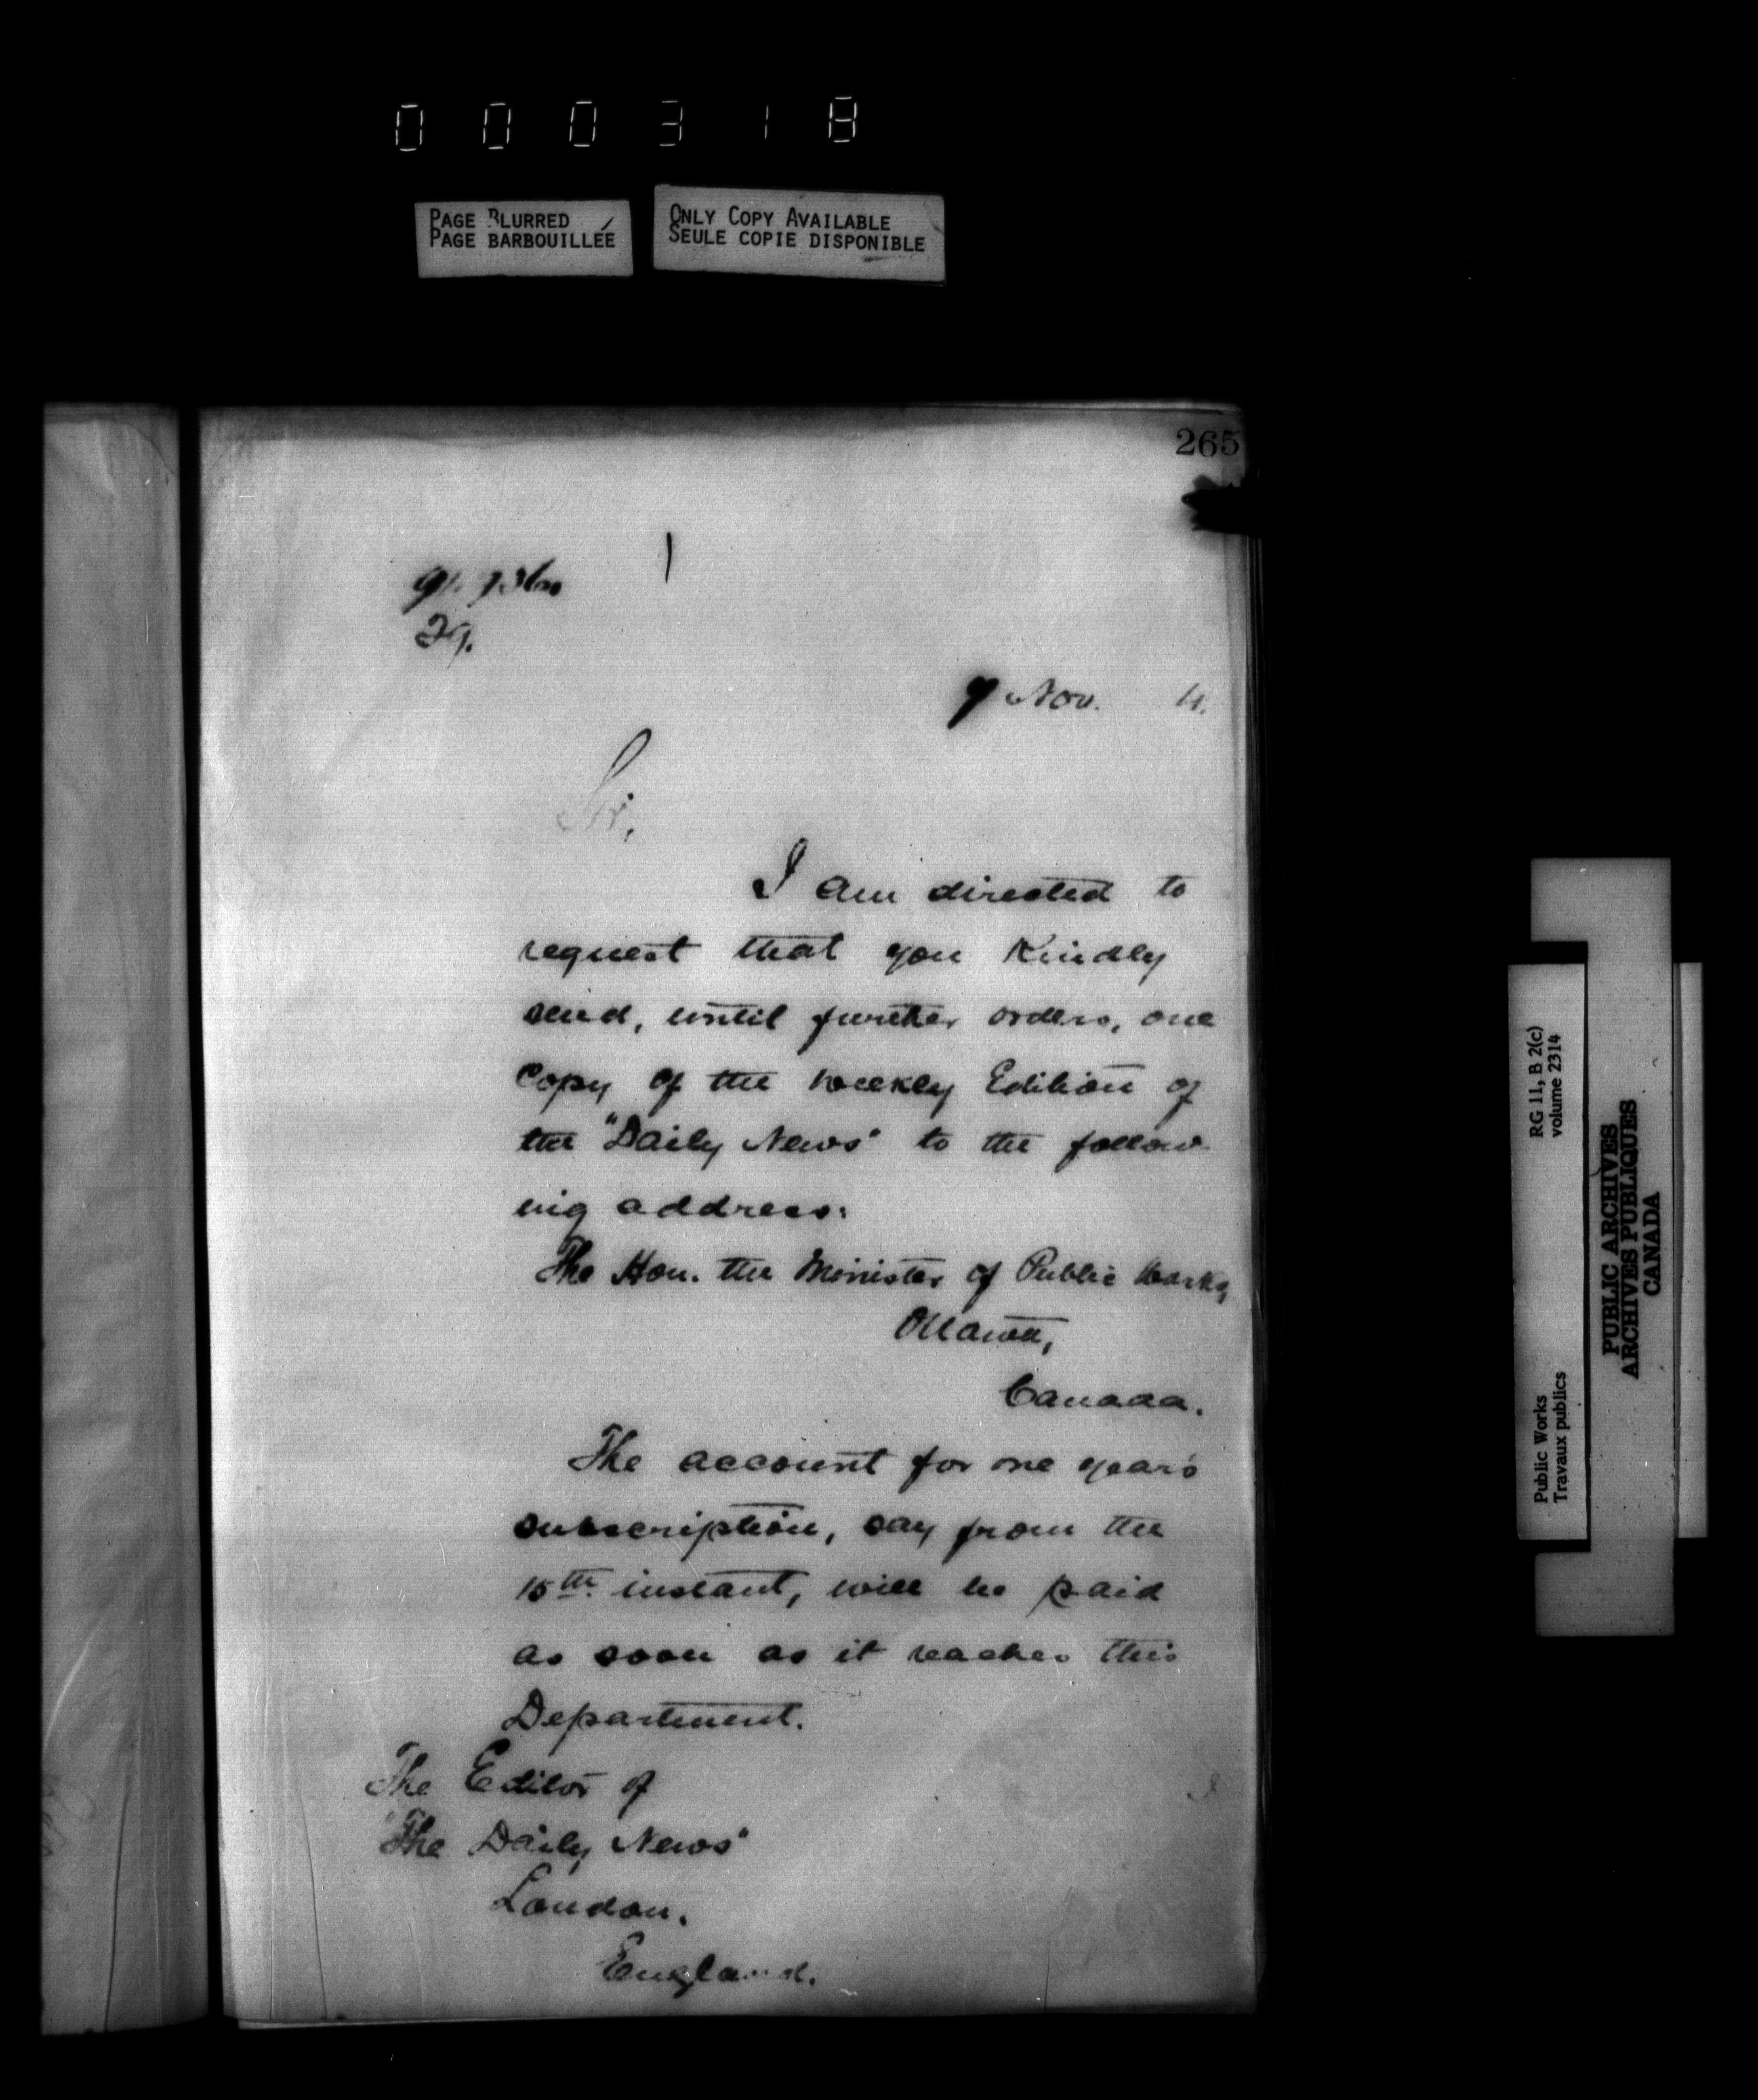 000318
PAGE BLURRED
PAGE BARBOUILLÉE
ONLY COPY AVAILABLE
SEULE COPIE DISPONIBLE
265
29.
9 Nov. 4.
Sir,
I am directed to
request that you Kindly
send, until further orders, one
copy of the weekly Edition of
the "Daily News" to the follow-
ing address:
The Hon. the Minister of Public Works,
Ottawa,
Canada.
The account for one year's
subscription, say from the
15th. instant, will be paid
as soon as it reaches this
Department.
The Editor of
"The Daily News"
London.
England.
RG 11, B 2(c)
volume 2314
Public Works
Travaux publics
PUBLIC ARCHIVES
ARCHIVES PUBLIQUES
CANADA